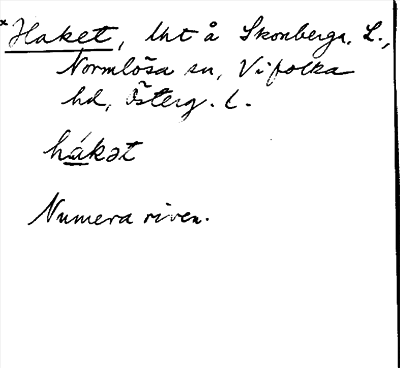 *Haket, lht å Skonberga, L.,
Normlösa sn, Vifolka
hd, Österg. l.
hákət
Numera riven.